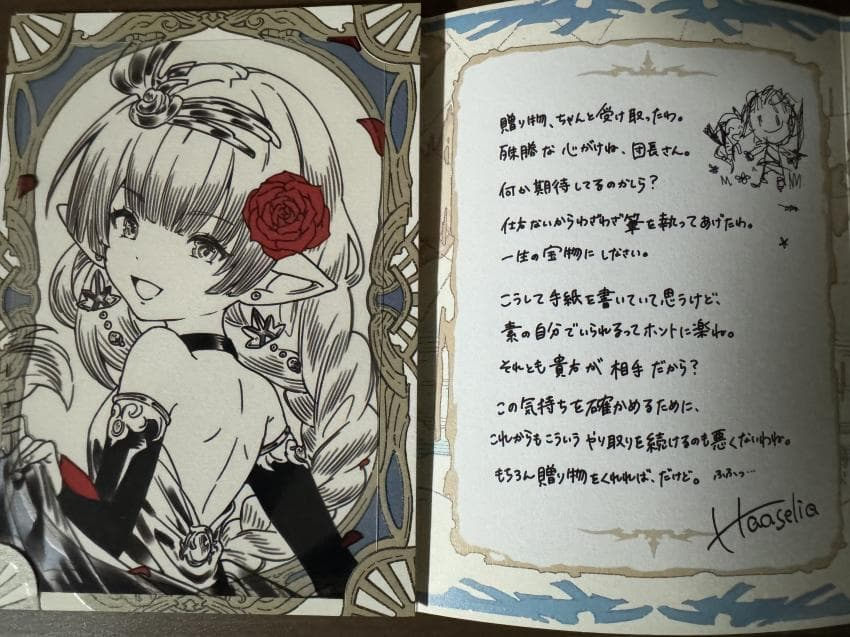 贈り物、ちゃんと受け取ったわ。
殊勝な心がけね、団長さん。
何か期待してるのかしら?
仕方ないからわざわざ筆を執ってあげたわ。
一生の宝物にしなさい。
こうして手紙を書いていて思うけど、
素の自分でいられるってホントに楽ね。
それとも貴方が相手だから?
この気持ちを確かめるために、
これからもこういうやり取りを続けるのも悪くないわね。
もちろん贈り物をくれれば、だけど。ふふっ…
Haaselia